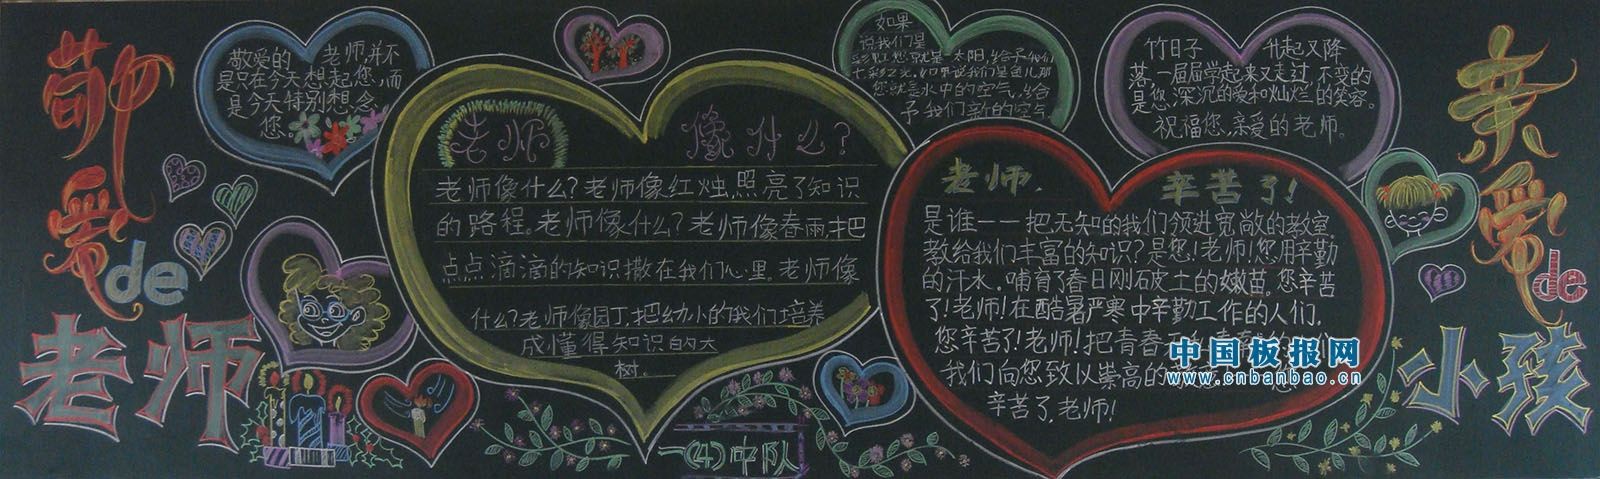 敬爱de
老师
敬爱的 老师,并不
是只在今天想起您,而
是今天特别想念
您
老师 像什么?
老师像什么?老师像红烛,照亮了知识
的路程。老师像什么?老师像春雨,把
点点滴滴的知识撒在我们心里。老师像
什么?老师像园丁,把幼小的我们培养
成懂得知识的大
树。
一(4)中队
如果
说我们是
彩虹,您就是一太阳,给予我们
七彩之光。如果说我们是鱼儿那
您就是水中的空气,给
予我们新的空气
竹日子 升起又降
落,一届届学起来又走过,不变的
是您,深沉的爱和灿烂的笑容。
祝福您,亲爱的老师。
老师, 辛苦了!
是谁——把无知的我们领进宽敞的教室,
教给我们丰富的知识?是您!老师!您用辛勤
的汗水,哺育了春日刚破土的嫩苗。您辛苦
了!老师!在酷暑严寒中辛勤工作的人们,
您辛苦了!老师!把青春
我们向您致以崇高的
辛苦了,老师!
亲爱de
小孩
中国板报网
www.cnbanbao.cn